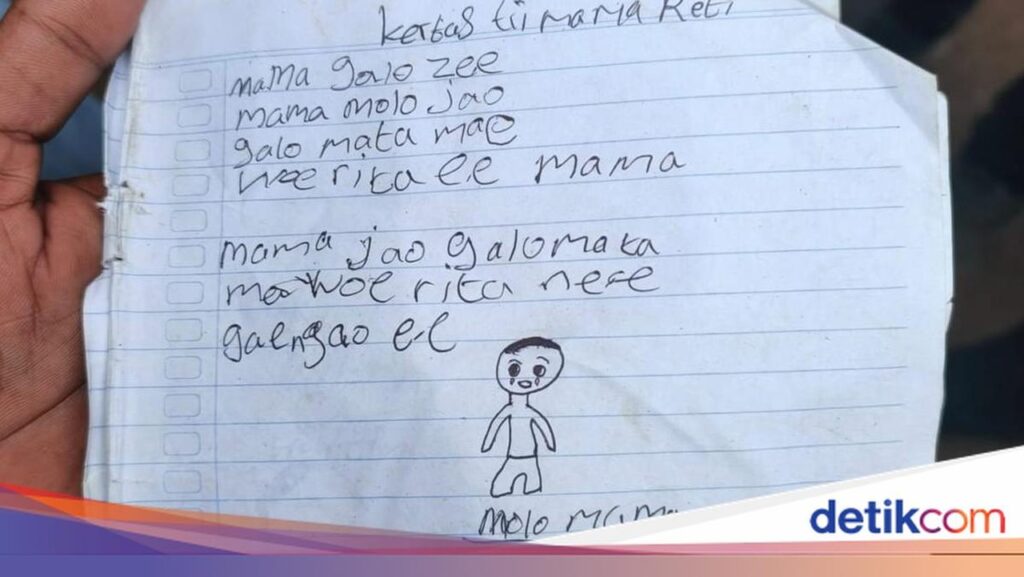 kertas tii mama Reti
mama galo zee
mama molo jao
galo mata mae
woe rita ee mama
mama jao galo mata
mae woe rita nee
gaengao ee
molo mama
detikcom